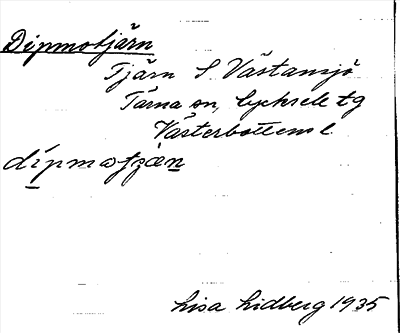 Dipmotjärn
Tjärn S Västansjö
Tärna sn, Lycksele tg
Västerbottens l
dípmotʒæn
Lisa Lidberg 1935